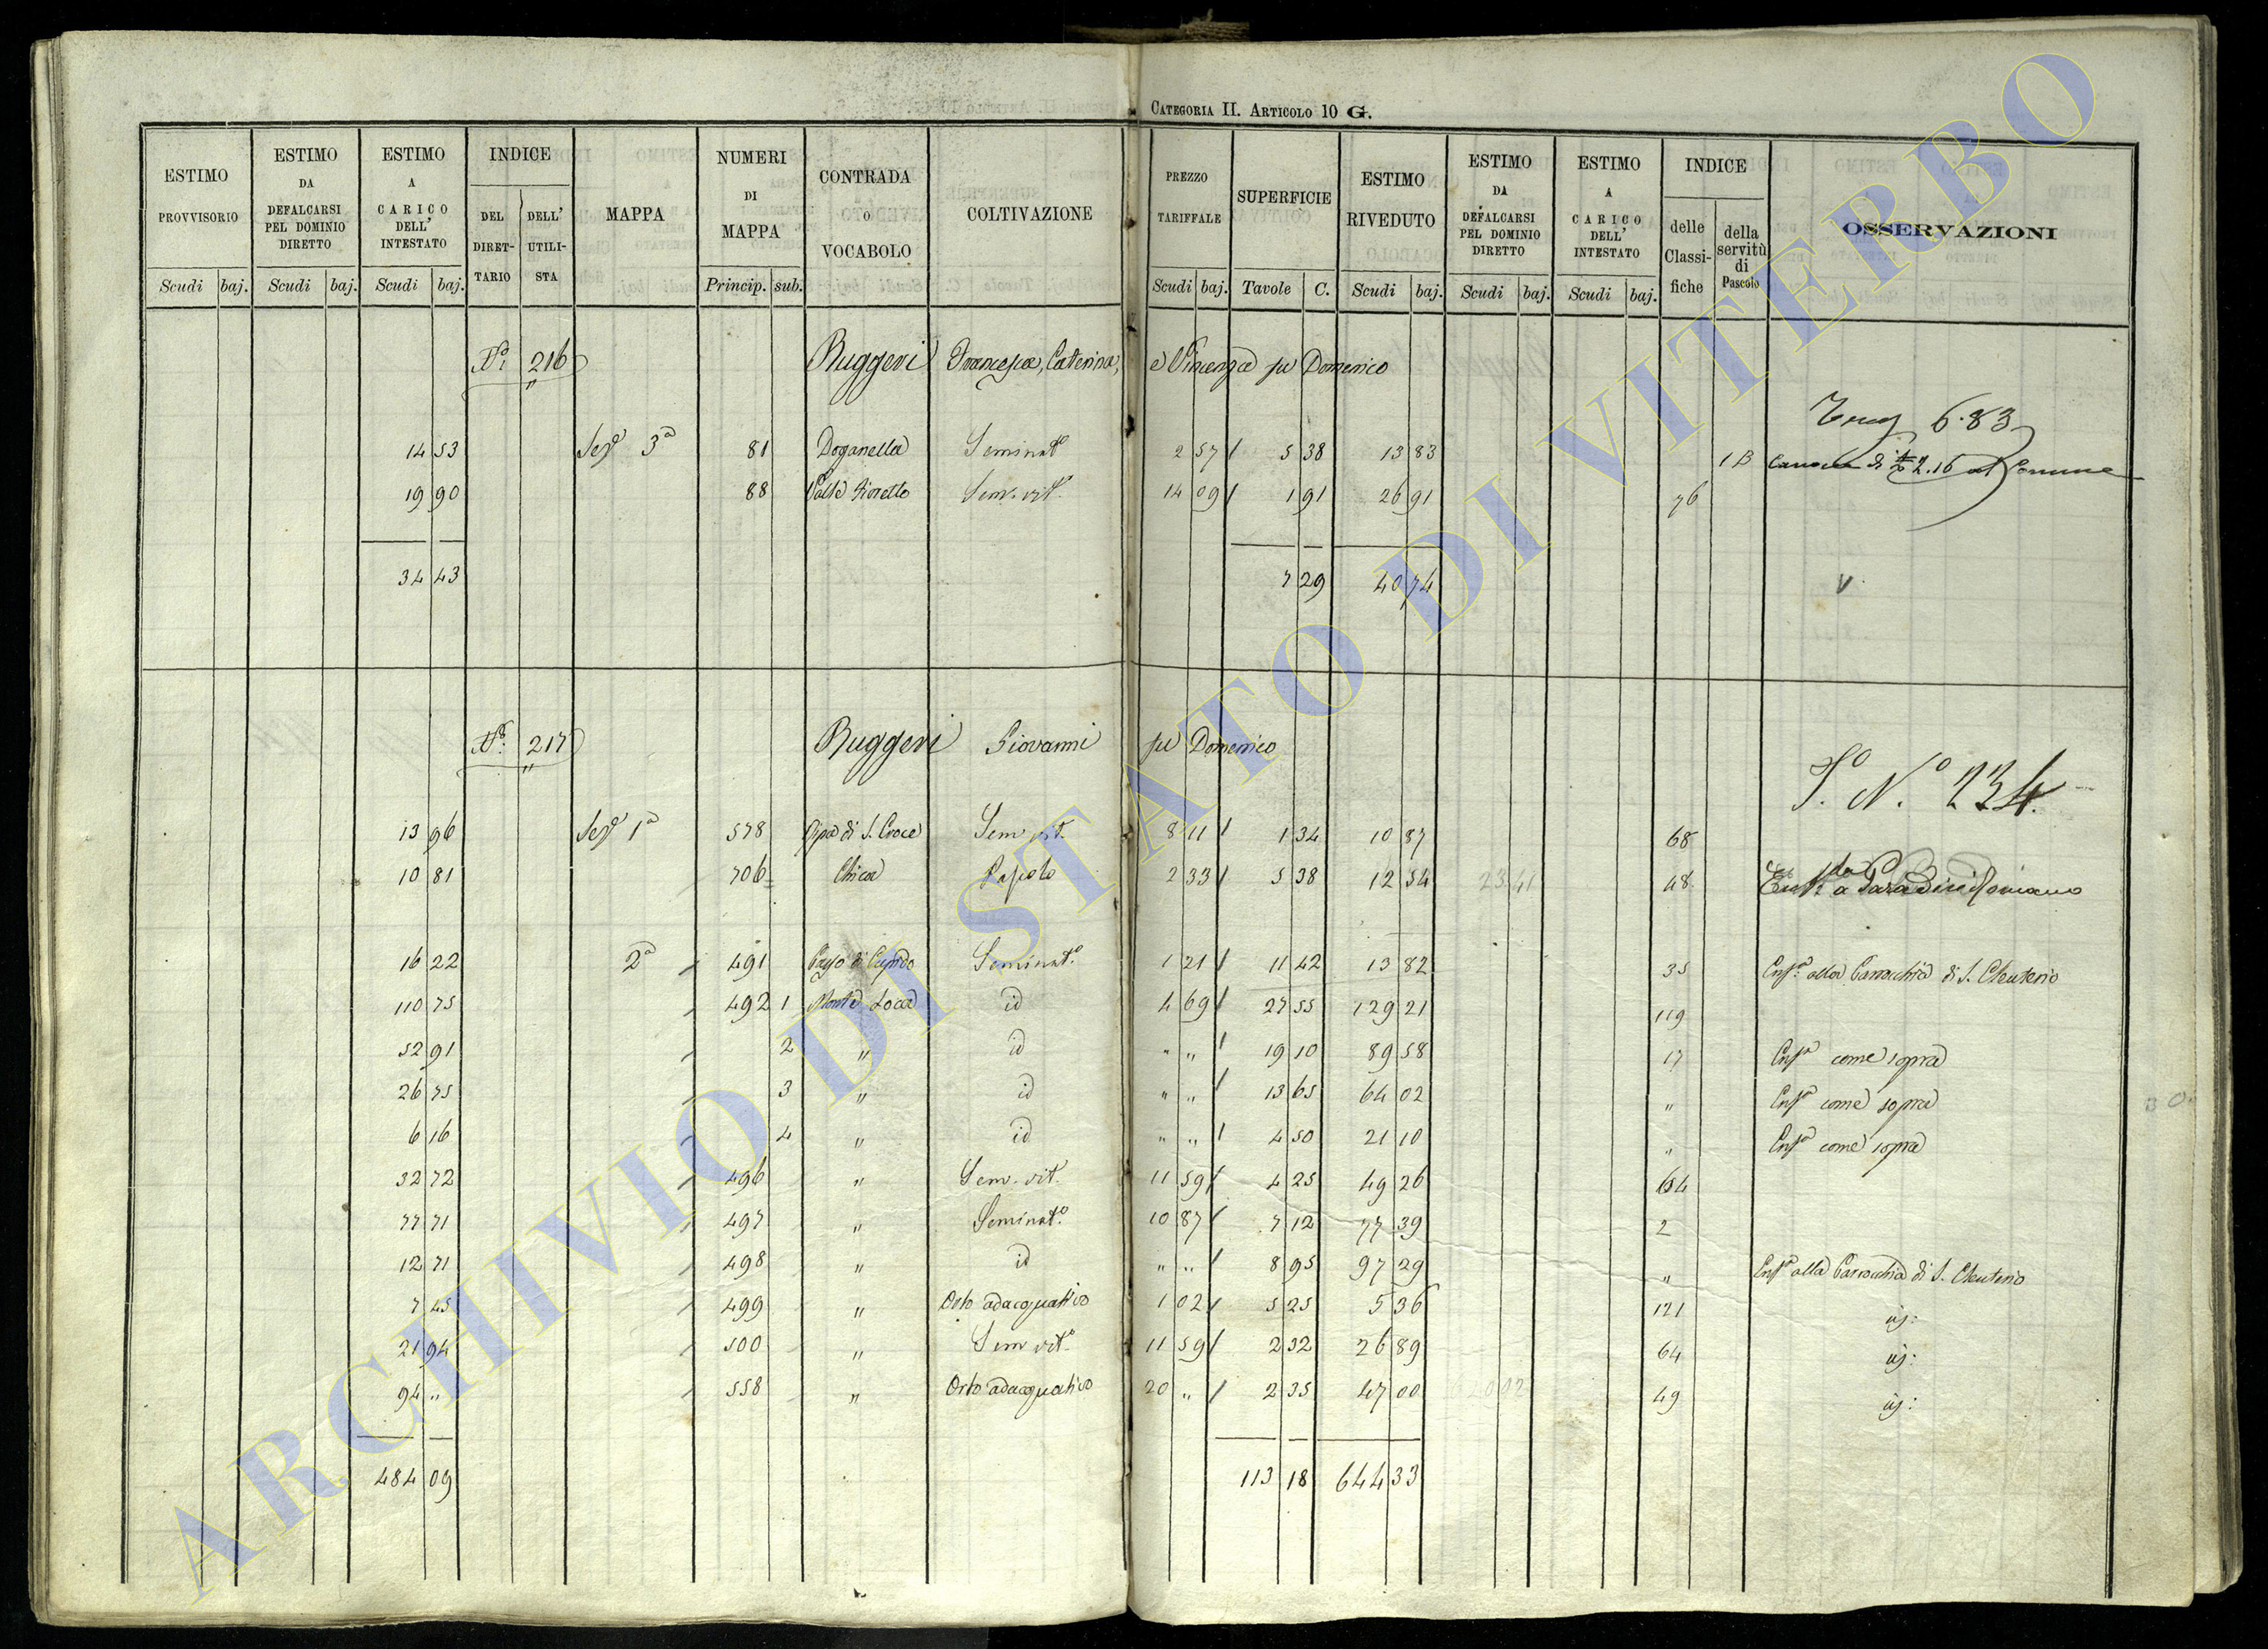 CATEGORIA II. ARTICOLO 10 G.
ESTIMO PROVVISORIO | ESTIMO DA DEFALCARSI PEL DOMINIO DIRETTO | ESTIMO A CARICO DELL' INTESTATO | INDICE | MAPPA | NUMERI DI MAPPA | CONTRADA O VOCABOLO | COLTIVAZIONE | PREZZO TARIFFALE | SUPERFICIE | ESTIMO RIVEDUTO | ESTIMO DA DEFALCARSI PEL DOMINIO DIRETTO | ESTIMO A CARICO DELL' INTESTATO | INDICE | OSSERVAZIONI
DEL DIRETTARIO | DELL' UTILISTA | delle Classifiche | della servitù di Pascolo
Scudi | baj. | Scudi | baj. | Scudi | baj. | Princip. | sub. | Scudi | baj. | Tavole | C. | Scudi | baj. | Scudi | baj. | Scudi | baj.
N.° 216 Ruggeri Francesca, Caterina, e Vincenza fu Domenico
6.83
14 53 Sez.e 3a 81 Doganella Seminat.o 2 57 5 38 13 83 1 B Canone di 2.16 al Comune
19 90 88 Valle Fioretto Sem. vit. 14 09 1 91 26 91 76
34 43 7 29 40 74
V
N.° 217 Ruggeri Giovanni fu Domenico
S.o N.o 234
13 96 Sez.e 1a 578 Ripa di S. Croce Sem. vit. 8 11 1 34 10 87 68
10 81 706 Chica Pascolo 2 33 5 38 12 54 23 41 48
16 22 2a 491 Passo di Cupido Seminat.o 1 21 11 42 13 82 35 Enf.a alla Parrocchia di S. Eleuterio
110 75 492 1 Monte Loca id 4 69 27 55 129 21 119
52 91 2 " id " " 19 10 89 58 17 Enf.a come sopra
26 75 3 " id " " 13 65 64 02 " Enf.a come sopra
6 16 4 " id " " 4 50 21 10 " Enf.a come sopra
32 72 496 " Sem. vit. 11 59 4 25 49 26 64
77 71 497 " Seminat.o 10 87 7 12 77 39 2
12 71 498 " id " " 8 95 97 29 " Enf.a alla Parrocchia di S. Eleuterio
7 45 499 " Orto adacquativo 1 02 5 25 5 36 121
21 94 500 " Sem. vit.o 11 59 2 32 26 89 64
94 " 558 " Orto adacquativo 20 " 2 35 47 00 49
484 09 113 18 644 33
ARCHIVIO DI STATO DI VITERBO